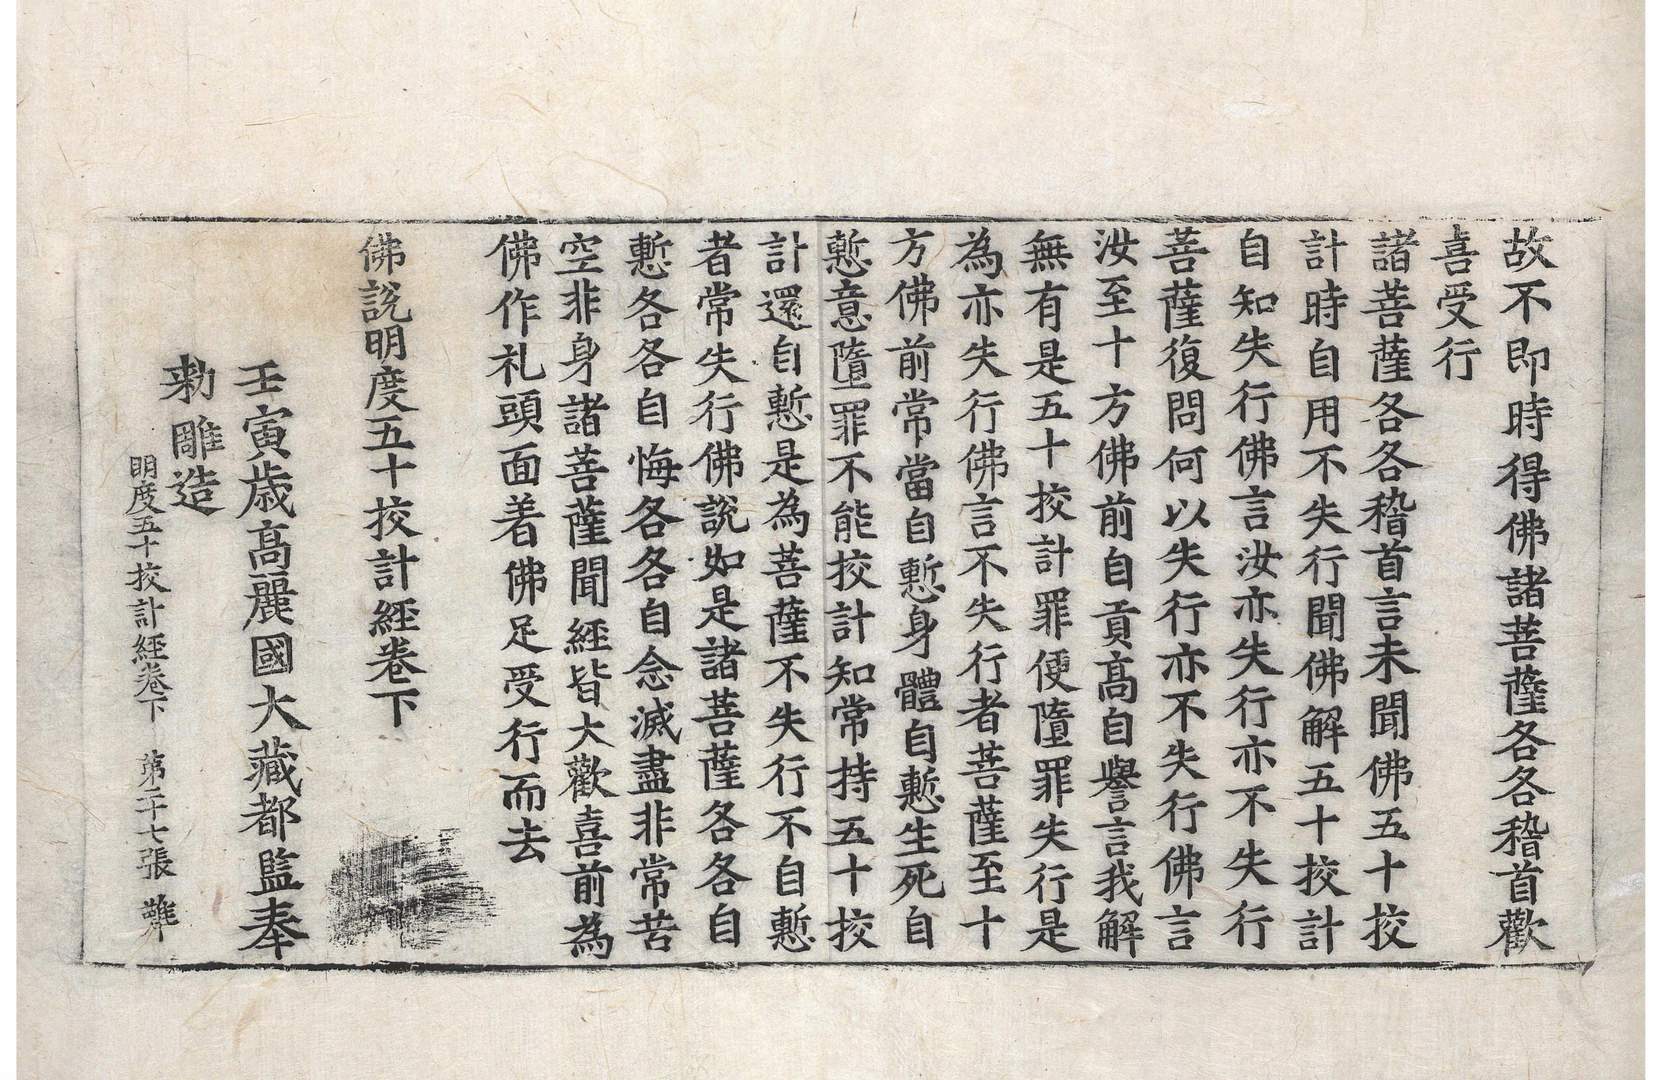 故不即時得佛諸菩薩各各稽首歡
喜受行
諸菩薩各各稽首言未聞佛五十挍
計時自用不失行聞佛解五十挍計
自知失行佛言汝亦失行亦不失行
菩薩復問何以失行亦不失行佛言
汝至十方佛前自貢髙自譽言我解
無有是五十挍計罪便墮罪失行是
為亦失行佛言不失行者菩薩至十
方佛前常當自慙身體自慙生死自
慙意墮罪不能挍計知常持五十挍
計還自慙是為菩薩不失行不自慙
者常失行佛說如是諸菩薩各各自
慙各各自悔各各自念滅盡非常苦
空非身諸菩薩聞經皆大歡喜前為
佛作礼頭面着佛足受行而去
佛說明度五十挍計經卷下
壬寅歳髙麗國大藏都監奉
勑雕造
明度五十挍計經卷下 第二十七張